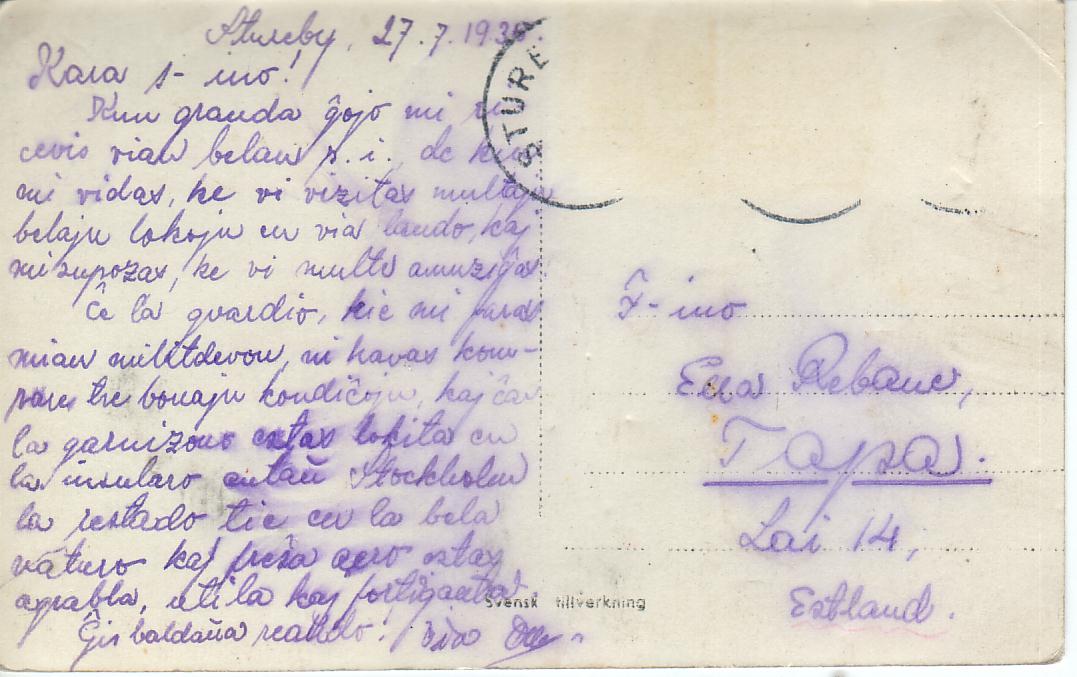 Stureby, 27.7.193
Kara s-ino!
Kun granda ĝojo mi ri-
cevis vian belan p. i., de kiu
mi vidas, ke vi vizitas multajn
belajn lokojn en via lando, kaj
mi supozas, ke vi multe amuziĝas.
Ĉe la gvardio, kie mi faras
mian militdevon, ni havas kom-
pare tre bonajn kondiĉojn, kaj ĉar
la garnizono estas lokita en
la insularo antaŭ Stockholm
la restado tie en la bela
naturo kaj freŝa aero estas
agrabla, utila kaj fortiganta.
Ĝis baldaŭa reaŭdo! via
STURE
F-ino
Rebane,
Tapa.
Lai 14,
Estland.
Svensk tillverkning